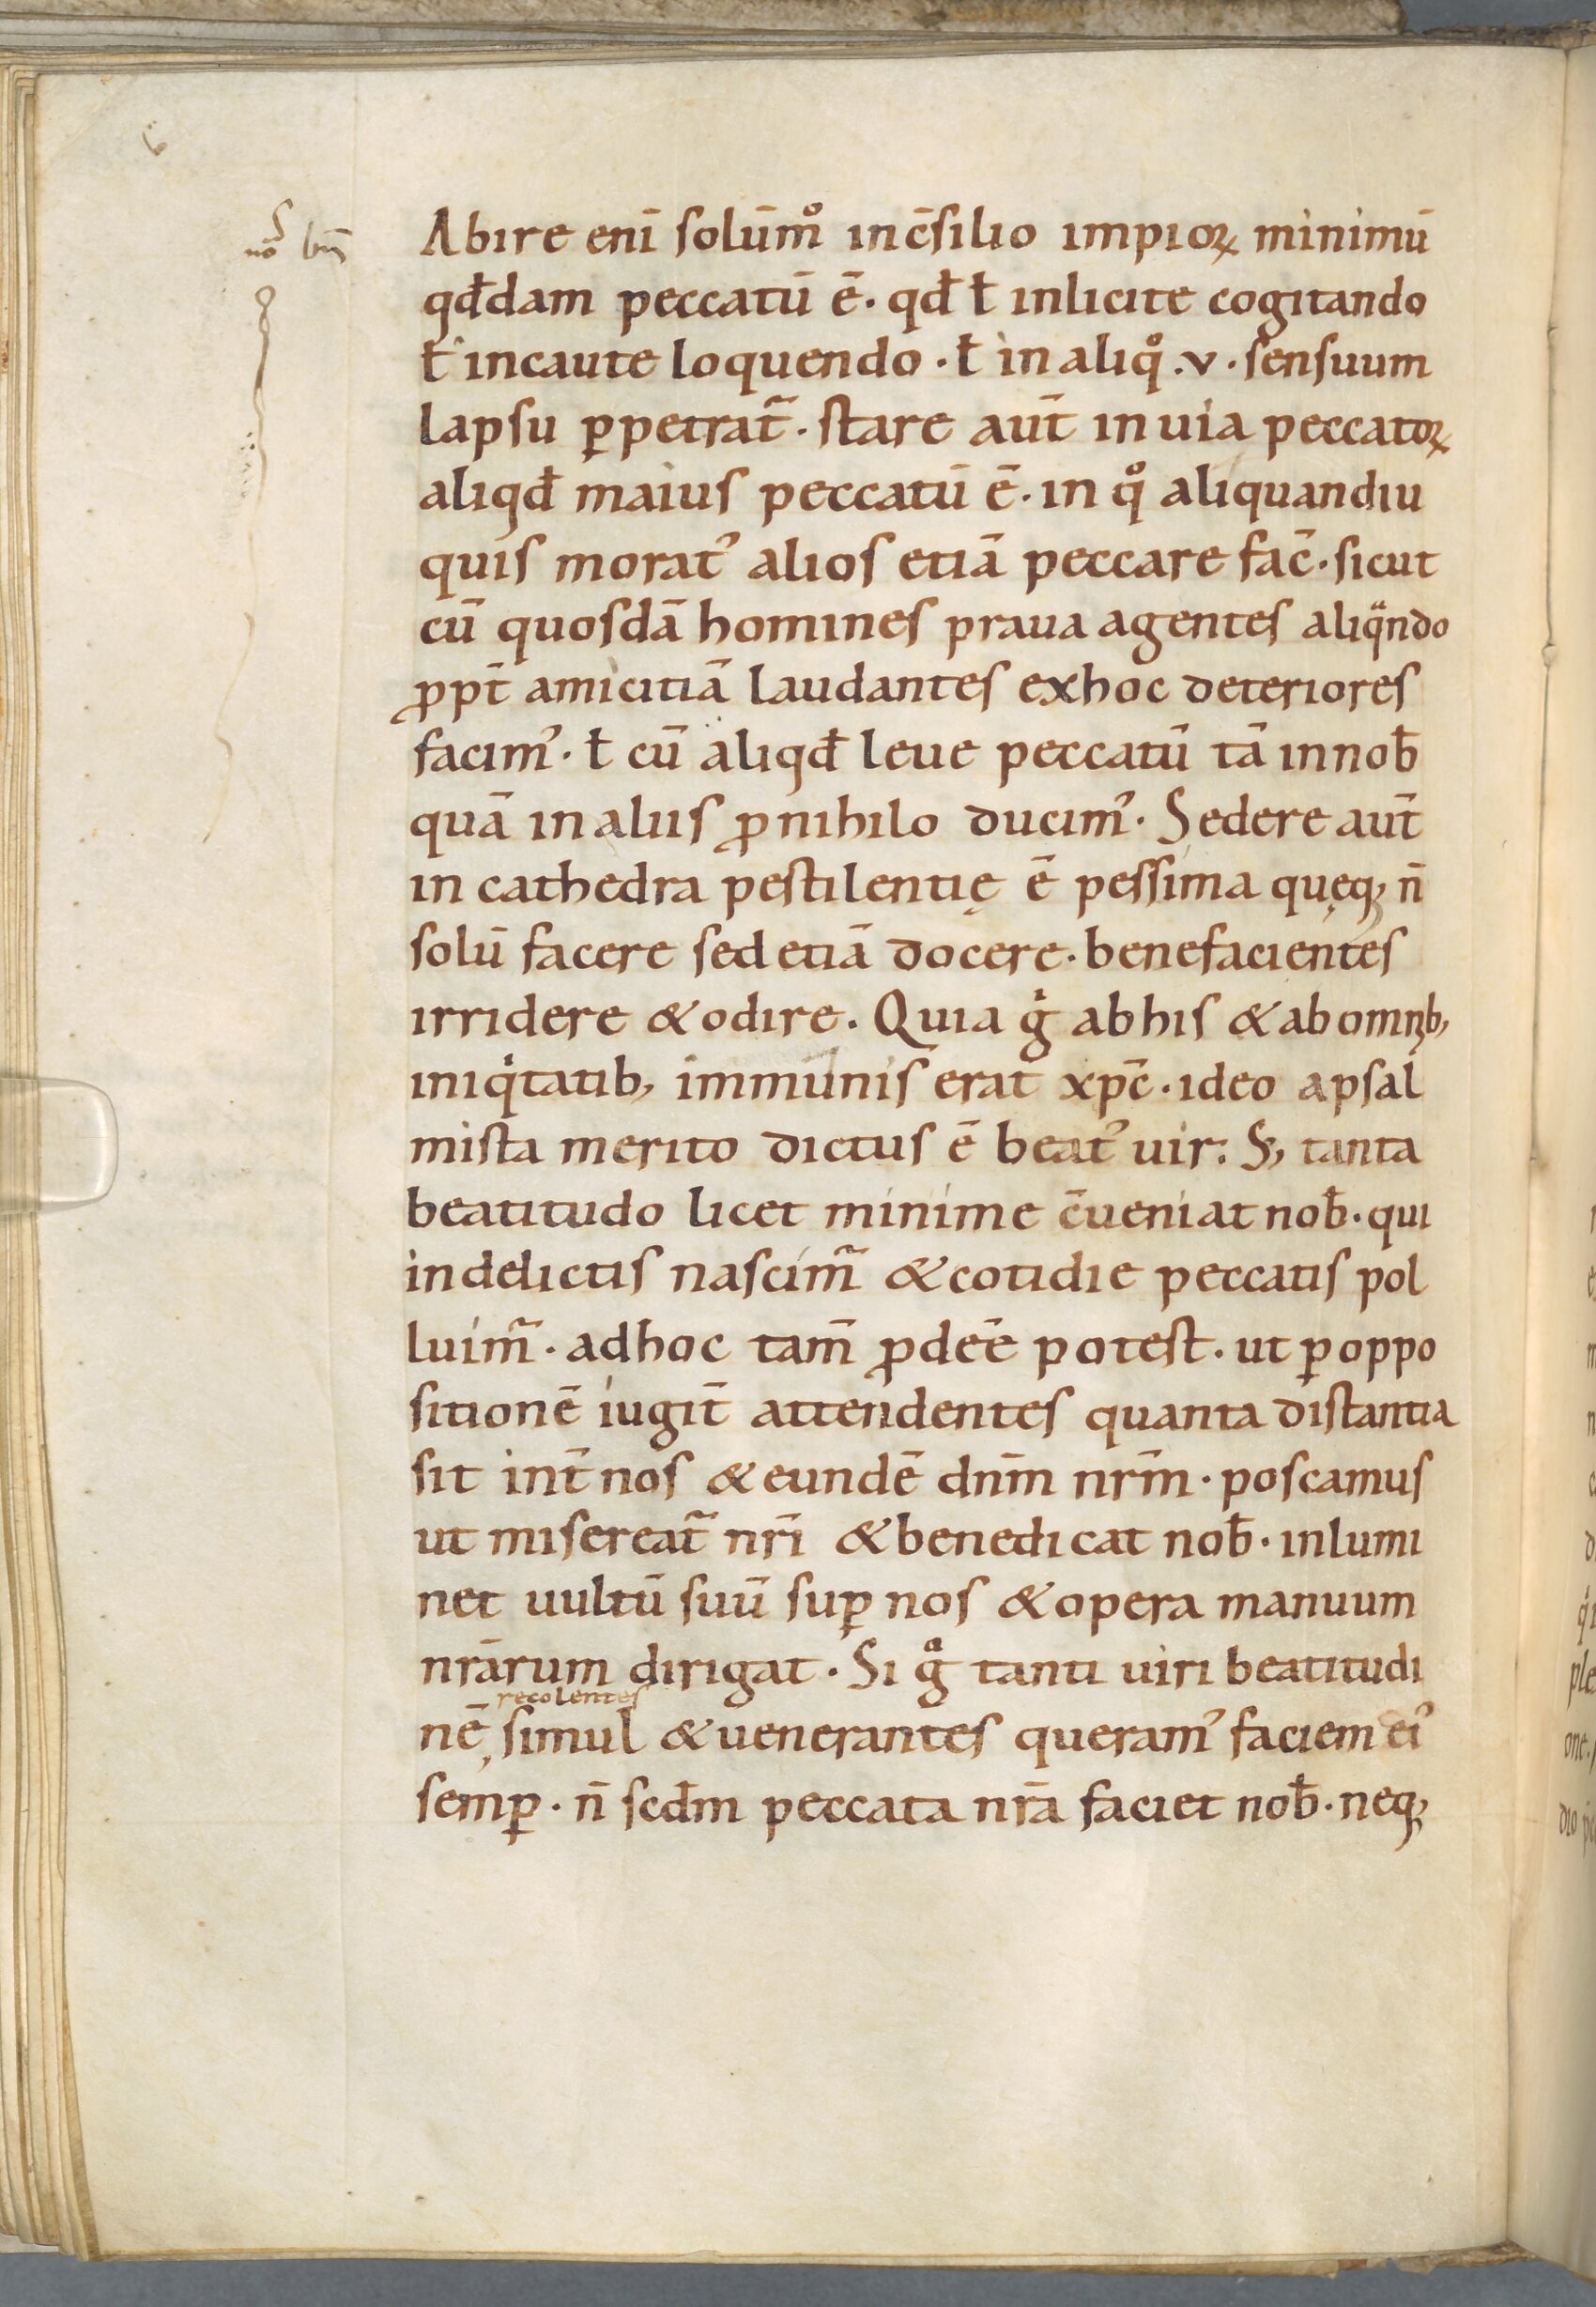 Abire enī solūmͦ inc̄silio impioꝝ minimū
qđdam peccatū ē· qđ ł inlicite cogitando
ł incaute loquendo · ł in aliqͦ .v. sensuum
lapsu ꝑpetrat᷑ · stare aut̄ in uia peccatoꝝ
aliqđ maius peccatū ē· in qͦ aliquandiu
quis moratˀ alios etiā peccare fac̄· sicut
cū quosdā homines praua agentes aliqᷓndo
ꝓpt̄ amicitiā laudantes exhoc deteriores
facimˀ· ł cū aliqđ leue peccatū tā in nob̄
quā in aliis ꝓ nihilo ducimˀ· Sedere aut̄
in cathedra pestilentię ē pessima quęq; n̄
solū facere sed etiā docere· benefacientes
irridere & odire. Quia gͥ ab his & ab omnib;
iniqͥtatib; immunis erat xp̄c· ideo a psal
mista merito dictus ē beatˀ uir: S; tanta
beatitudo licet minime c̄ueniat nob̄· qui
in delictis nascim᷑ & cotidie peccatis pol
luim᷑· ad hoc tam̄ ꝓdeē potest· ut ꝑ oppo
sitionē iugit̄ attendentes quanta distantia
sit int̄ nos & eundē dnm̄ nrm̄· poscamus
ut misereat᷑ nrī & benedicat nob̄· inlumi
net uultū suū suꝑ nos & opera manuum
nrārum dirigat· Si gͦ tanti uiri beatitudi
recolentes
nē, simul & uenerantes queramˀ faciem eiˀ
semꝑ· n̄ scđm peccata nrā faciet nob̄· neq;